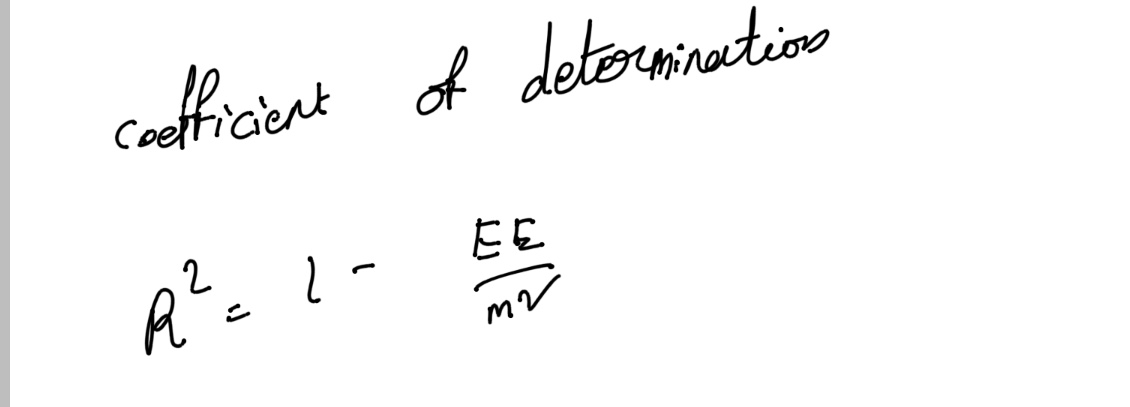 coefficient of determination
R² = 1 - EE / mv